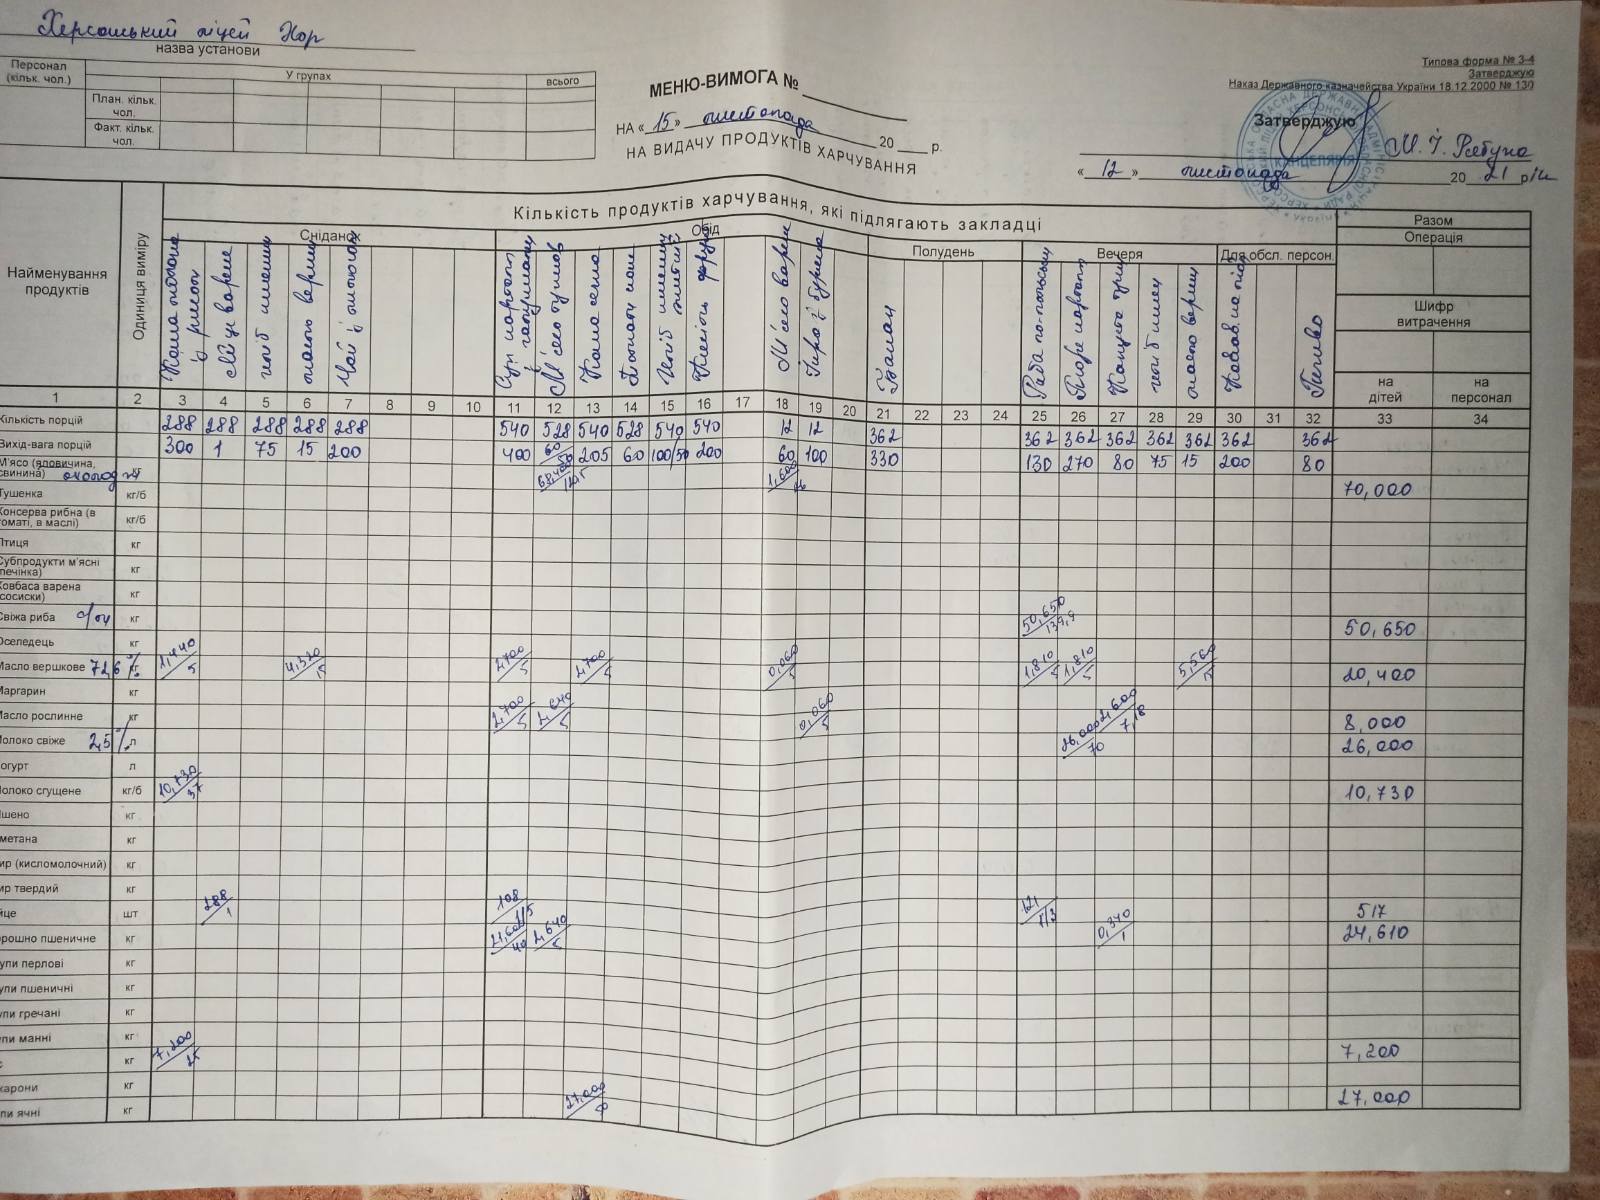 Херсонський ліцей Хор
назва установи
Персонал (кільк. чол.)
У групах
всього
План. кільк. чол.
Факт. кільк. чол.
МЕНЮ-ВИМОГА №
НА «15» листопада 20 р.
НА ВИДАЧУ ПРОДУКТІВ ХАРЧУВАННЯ
Типова форма № З-4
Затверджую
Наказ Державного казначейства України 18.12.2000 № 130
Затверджую
КАНЦЕЛЯРІЯ
«12» листопада 2021 р
Найменування продуктів
Одиниця виміру
Кількість продуктів харчування, які підлягають закладці
Сніданок
Обід
Полудень
Вечеря
Для обсл. персон.
Разом
Операція
Шифр витрачення
на дітей
на персонал
Яйце варене
хліб
масло верш
Чай з лимоном
Суп
М'ясо
Каша
Хліб
М'ясо варене
Банан
Риба по-польськи
Пюре
Капуста
хліб
масло верш
Печиво
1 2 3 4 5 6 7 8 9 10 11 12 13 14 15 16 17 18 19 20 21 22 23 24 25 26 27 28 29 30 31 32 33 34
Кількість порцій 288 288 288 288 288 540 528 540 528 540 540 12 12 362 362 362 362 362 362 362 362
Вихід-вага порцій 300 1 75 15 200 400 60/50 205 60 100/50 200 60 100 330 130 270 80 75 15 200 80
М'ясо (яловичина, свинина)
1,600
70,000
Тушенка кг/б
Консерва рибна (в томаті, в маслі) кг/б
Птиця кг
Субпродукти м'ясні (печінка) кг
Ковбаса варена (сосиски) кг
Свіжа риба с/м кг 50,650/139,9 50,650
Оселедець кг
Масло вершкове 72,6% кг 1,440/5 4,320/15 2,700/5 2,700/5 0,060/5 1,810/5 1,810/5 5,560/15 20,400
Маргарин кг
Масло рослинне кг 2,700/5 2,640/5 0,060/5 2,600/7,18 8,000
Молоко свіже 2,5% л 26,000/70 26,000
Йогурт л
олоко сгущене кг/б 10,730/37 10,730
шено кг
метана кг
ир (кисломолочний) кг
ир твердий кг
йце шт 288/1 108 1/5 121 1/3 517
орошно пшеничне кг 21,600/40 2,640/5 0,340/1 24,610
упи перлові кг
упи пшеничні кг
упи гречані кг
упи манні кг
с кг 7,200/25 7,200
карони кг
пи ячні кг 27,000 27,000